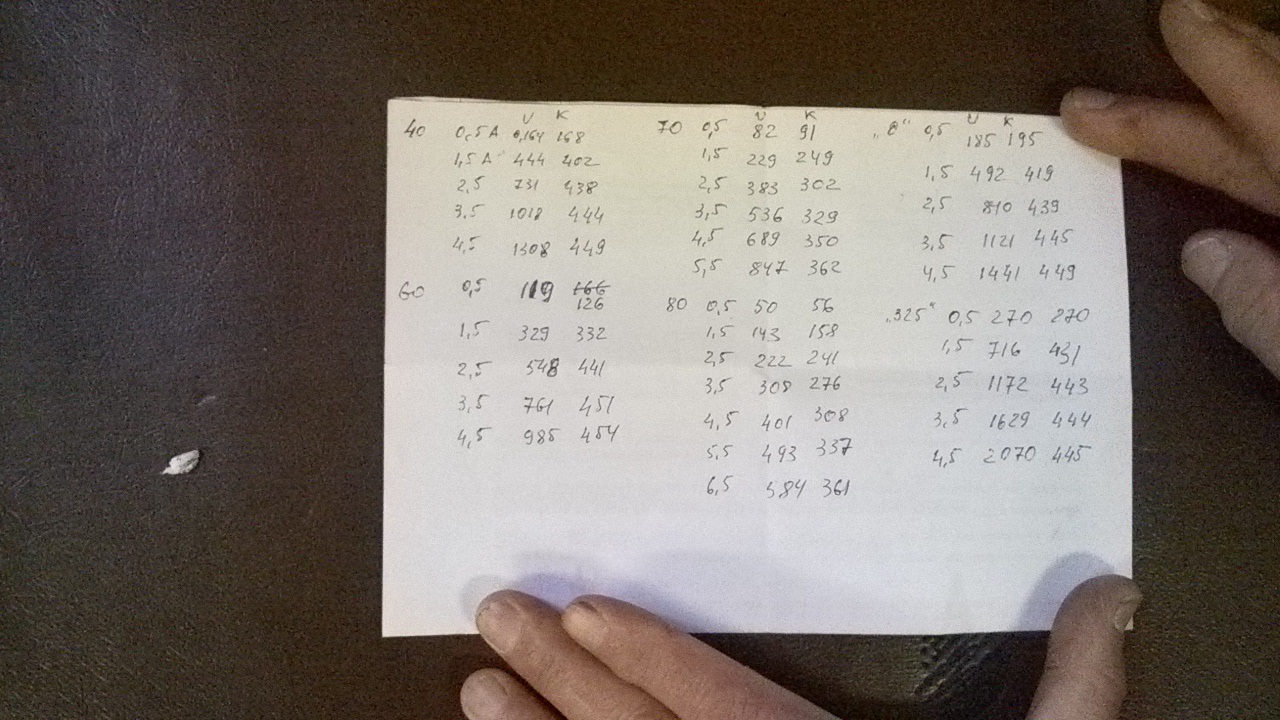 U K
40 0,5A 0,164 168
1,5A 444 402
2,5 731 438
3,5 1018 444
4,5 1308 449
60 0,5 119 166
126
1,5 329 332
2,5 548 441
3,5 761 451
4,5 985 454
U K
70 0,5 82 91
1,5 229 249
2,5 383 302
3,5 536 329
4,5 689 350
5,5 847 362
80 0,5 50 56
1,5 143 158
2,5 222 241
3,5 308 276
4,5 401 308
5,5 493 337
6,5 584 361
U K
„0“ 0,5 185 195
1,5 492 419
2,5 810 439
3,5 1121 445
4,5 1441 449
„325“ 0,5 270 270
1,5 716 431
2,5 1172 443
3,5 1629 444
4,5 2070 445